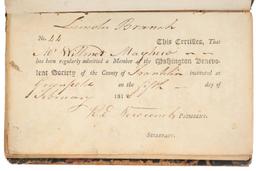 Lincoln Branch
No. 44 This Certifies, That
Mr Wilmot Mayhew
has been regularly admitted a Member of the Washington Benevo-
lent Society of the County of Franklin instituted at
Greenfield on the fifth day of
February 181
R. E. Newcomb President.
Secretary.